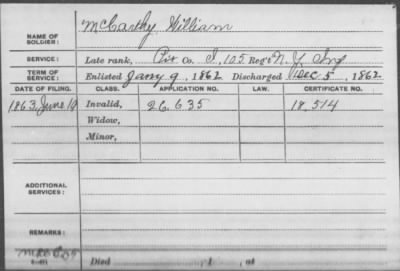 McCarthy, William
NAME OF SOLDIER:
SERVICE: Late rank, Pvt Co. I, 105 Reg't N. Y. Inf
TERM OF SERVICE: Enlisted Jany 9, 1862 Discharged Dec 5, 1862
DATE OF FILING. CLASS. APPLICATION NO. LAW. CERTIFICATE NO.
1863, June 10 Invalid, 26.635 18.514
Widow,
Minor,
ADDITIONAL SERVICES:
REMARKS:
Died , 1 , at